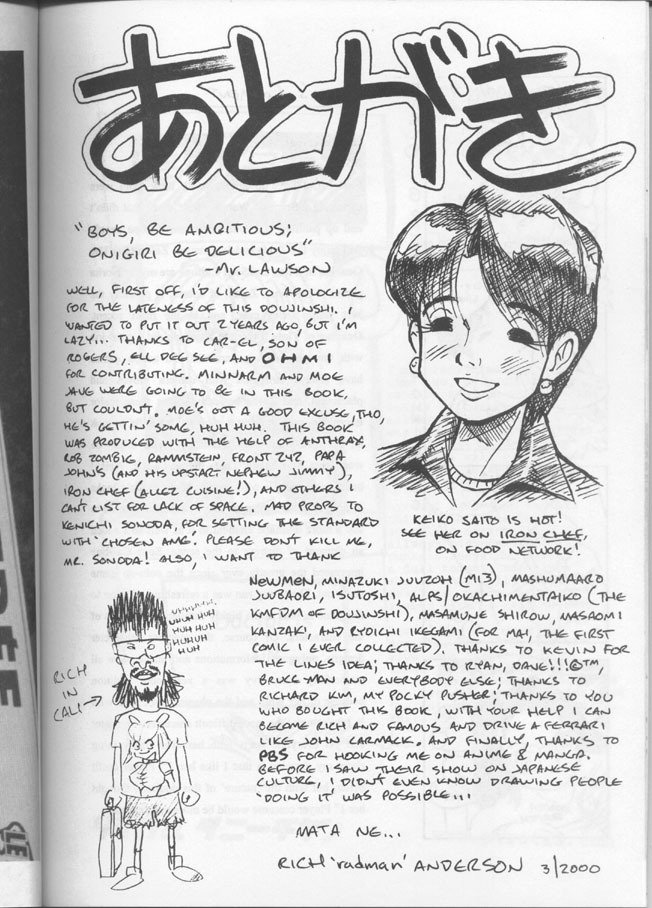 あとがき
"BOYS, BE AMBITIOUS;
ONIGIRI BE DELICIOUS"
-MR. LAWSON
WELL, FIRST OFF, I'D LIKE TO APOLOGIZE
FOR THE LATENESS OF THIS DOUJINSHI. I
WANTED TO PUT IT OUT 2 YEARS AGO, BUT I'M
LAZY... THANKS TO CAR-EL, SON OF
ROGERS, ELL DEE SEE, AND OHMI
FOR CONTRIBUTING. MINNARM AND MOE
JAVE WERE GOING TO BE IN THIS BOOK,
BUT COULDN'T. MOE'S GOT A GOOD EXCUSE, THO,
HE'S GETTIN' SOME, HUH HUH. THIS BOOK
WAS PRODUCED WITH THE HELP OF ANTHRAX,
ROB ZOMBIE, RAMMSTEIN, FRONT 242, PAPA
JOHN'S (AND HIS UPSTART NEPHEW JIMMY),
IRON CHEF (ALLEZ CUISINE!), AND OTHERS I
CAN'T LIST FOR LACK OF SPACE. MAD PROPS TO
KENICHI SONODA, FOR SETTING THE STANDARD
WITH 'CHOSEN AME'. PLEASE DON'T KILL ME,
MR. SONODA! ALSO, I WANT TO THANK
KEIKO SAITO IS HOT!
SEE HER ON IRON CHEF,
ON FOOD NETWORK!
NEWMEN, MINAZUKI JUUZOH (M13), MASHUMAARO
JUUBAORI, ISUTOSHI, ALPS/OKACHIMENTAIKO (THE
KMFDM OF DOUJINSHI), MASAMUNE SHIROW, MASAOMI
KANZAKI, AND RYOICHI IKEGAMI (FOR MAI, THE FIRST
COMIC I EVER COLLECTED). THANKS TO KEVIN FOR
THE LINES IDEA; THANKS TO RYAN, DAVE!!!®™,
BRUCE-MAN AND EVERYBODY ELSE; THANKS TO
RICHARD KIM, MY POCKY PUSHER; THANKS TO YOU
WHO BOUGHT THIS BOOK, WITH YOUR HELP I CAN
BECOME RICH AND FAMOUS AND DRIVE A FERRARI
LIKE JOHN CARMACK. AND FINALLY, THANKS TO
PBS FOR HOOKING ME ON ANIME & MANGA.
BEFORE I SAW THEIR SHOW ON JAPANESE
CULTURE, I DIDN'T EVEN KNOW DRAWING PEOPLE
'DOING IT' WAS POSSIBLE...
MATA NE...
RICH 'radman' ANDERSON 3/2000
UHUHUH
HUH HUH
HUH HUH
HUHUH
HUH
RICH
IN
CALI →